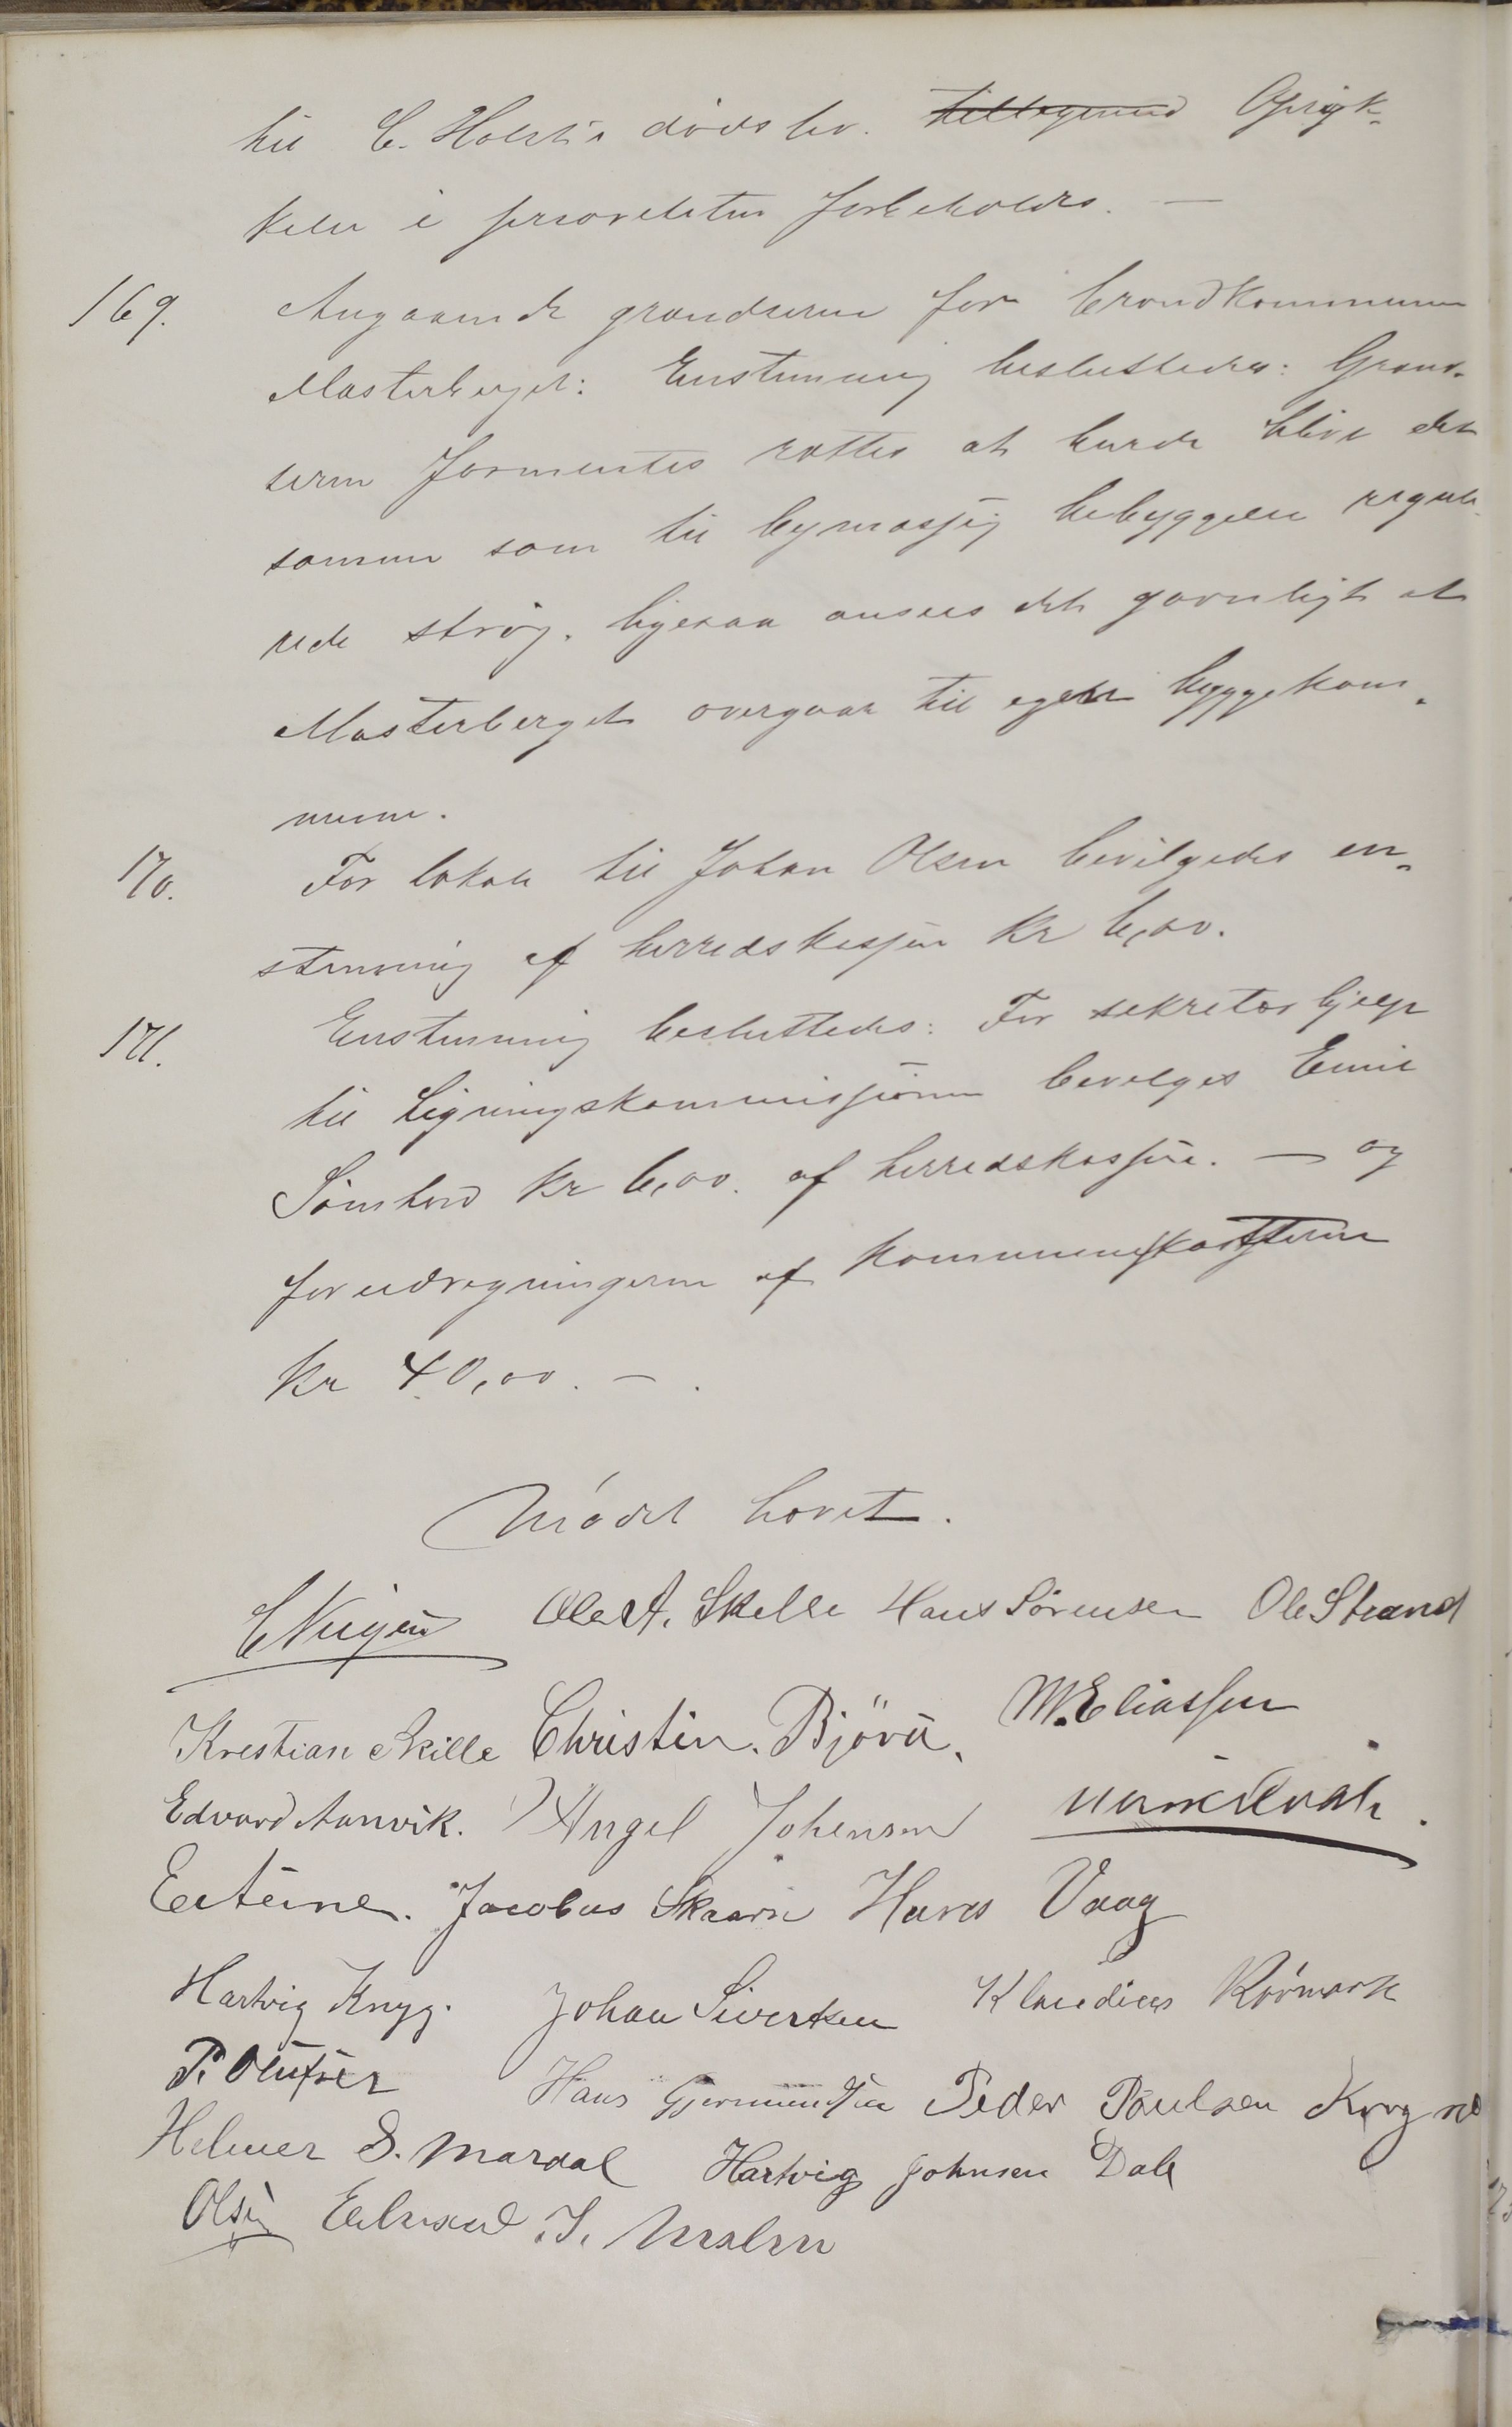 til C. Holst's dødsbo. Opryk-
kelse i prioriteten forbeholdes. —
169. Angaaende grændserne for brandkommunen
Mosterberget: Enstemmig besluttedes: Grænd-
serne formentes rettest at burde blive det
samme som til bymæssig bebyggelse regule-
rede strøg. ligesaa ansees det gavnligt at
Mosterberget overgaar til egen byggekom-
mune.
170. For lokale til Johan Olsen bevilgedes en-
stemmig af herredskassen kr 6,00.
171. Enstemmig besluttedes: For sekretærhjælp
til Ligningskommissionen bevilges Emil
kr 6,00. af herredskassen. — og
for udregningerne af kommuneskatterne
kr 40,00. —.
Mødet hævet.
Ole A. Skille Hans Sörensen Ole Strand
Krestian Skille Christin. Björü. M. Eliassen
Edvard Aanvik. Angel Johensen
Jacobus Skaarn Hans Vaag
Hartvig Kryg. Johan Sivertsen Klaudius Röömark
P. Olufsen Hans Gjermundsen Peder Paulsen
Helmer S. Mardal Hartvig Johnsen Dale
Olsen